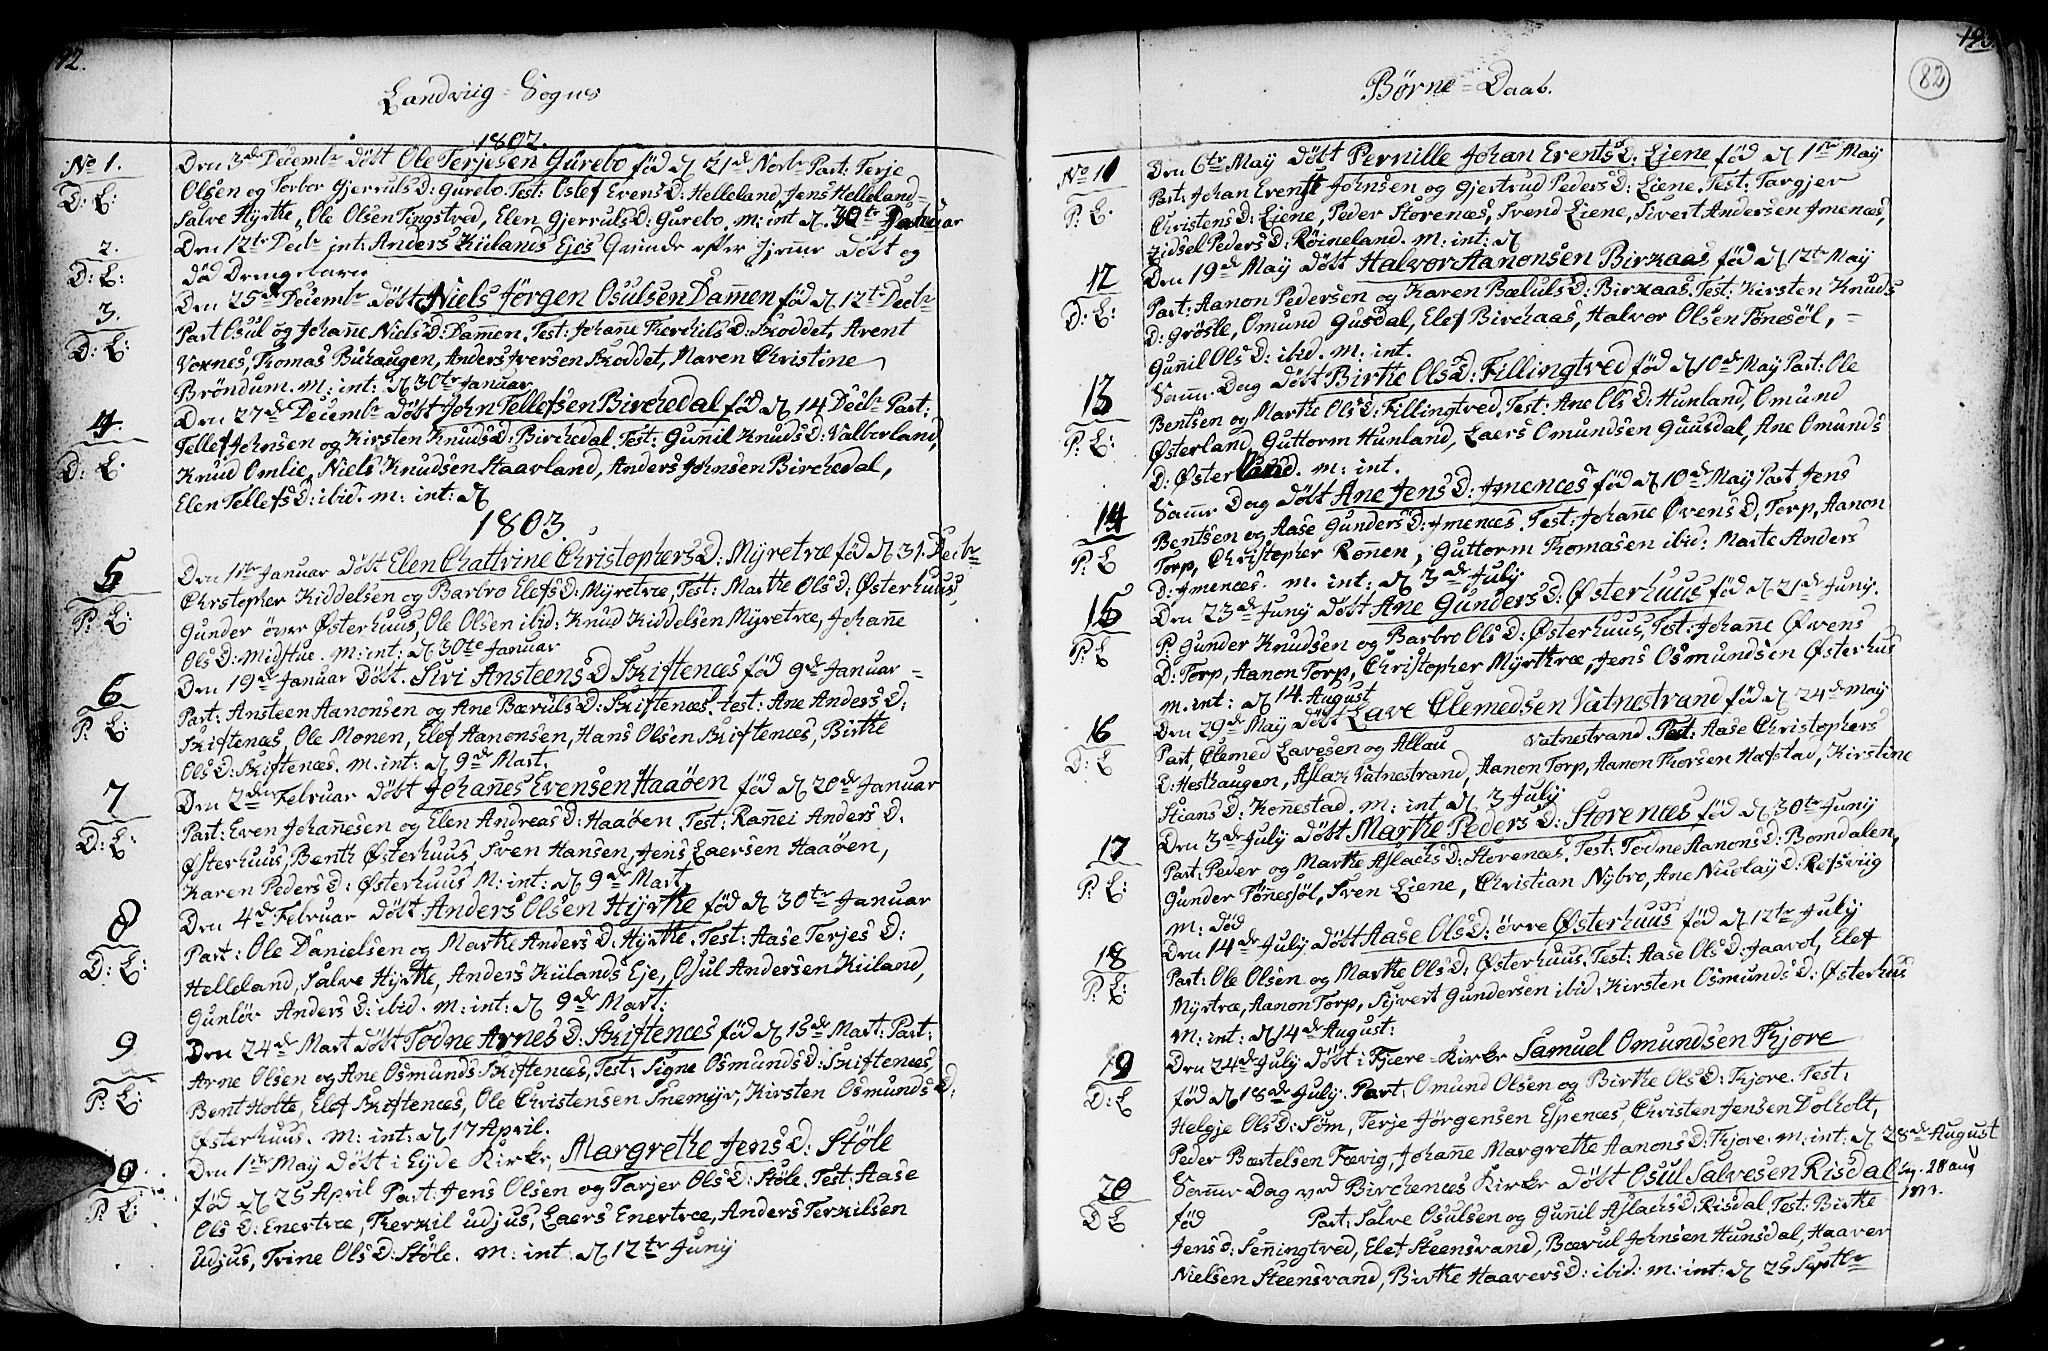 Landviig = Sogns
1802.
No 1. Den 3de Decembr döbt Ole Terjesen Gurebo föd d 21de Novbr Part: Terje
D: E: Olsen og Torbor GjerrulsD: Gurebo. Test: Oslef ErensD: Helleland, Jens Helleland
Salve Hyrthe, Ole Olsen Tingstved, Elen GjerrulsD: Gurebo. m: int d 30te Januar
2. Den 12te Decbr int: Anders Kiilands Ejes Qvinde efter hjemme döbt og
D: E: död Drengebarn
3. Den 25de Decembr döbt Niels Jörgen Osulsen Damen föd d 12te Decbr
D: E: Part Osul og Johañe NielsD: Damen. Test: Johañe TherchilsD: Skoddet, Arent
Voxnes, Thomas Buhaugen, Anders Iversen Skoddet, Maren Christine
Bröndum. m: int: d 30te Januar
4. Den 27de Decembr döbt John Tellefsen Birchedal föd d 14 Decbr Part:
D: E: Tellef Johnsen og Kirsten KnudsD: Birchedal. Test: Guñil KnudsD: Valberland,
Knud Omlie, Niels Knudsen Staarland, Anders Johnsen Birchedal,
Elen TellefsD: ibid. m: int: d
1803.
5 Den 1te Januar döbt Elen Chattrine ChristophersD: Myretræ föd d 31. Decbr
P: E: Chrstopher Kiddelsen og Barbro ElefsD: Myretræ, Test: Marthe OlsD: Østerhuus,
Gunder över Østerhuus, Ole Olsen ibid: Knud Kiddelsen Myretræ, Johañe
OlsD: Midstue. m: int: d 30te Januar
6 Den 19de Januar Döbt. Siri AnsteensD Skiftenæs föd 9de Januar =
P: E: Part: Ansteen Aanonsen og Ane BærulsD: Skiftenæs. test: Ane AndersD:
Skiftenæs, Ole Monen, Elef Aanonsen, Hans Olsen Skiftenæs, Birthe
OlsD: Skiftenæs. m. int: d 9de Mart.
7 Den 2den Februar döbt Johañes Evensen Haaöen föd d 20de Januar
D: E: Part: Even Johañesen og Elen AndreasD: Haaöen. Test: Rañei AndersD:
Østerhuus, Benth Østerhuus, Sven Hansen, Jens Laersen Haaöen,
Karen PedersD: Østerhuus M: int: d 9de Mart
8 Den 4de Februar döbt Anders Olsen Hyrthe föd d 30te Januar
D: E: Part: Ole Danielsen og Marthe AndersD: Hyrthe. Test: Aase TerjesD:
Helleland, Salve Hyrthe, Anders Kiilands Eje, Osul Andersen Kiiland,
Gunlör AndersD: ibid. m: int: d 9de Mart:
9 Den 24de Mart döbt Todne ArnesD: Skiftenæs föd d 15de Mart: Part:
P: E: Arne Olsen og Ane Osmunds Skiftenæs, Test: Signe OsmundsD: Skiftenæs,
Bent Holte, Elef Skiftenæs, Ole Christensen Snemyr, Kirsten OsmundsD:
Østerhuus. m: int: d 17 April.
10. Den 1te Maÿ döbt i Eyde Kirke, Margrethe JensD: Stöle
P: E: föd d 25 April Part: Jens Olsen og Tarjer OlsD: Stöle. Test: Aase
OlsD: Enertræ, Therkil Udjus, Laers Enertræ, Anders Terkilsen
Udjus, Trine OlsD: Stöle. m: int d 12te Junÿ
193.
82
Børne = Daab.
No 11 Den 6te Maÿ döbt Pernille Johan ErentsD: Liene föd d 1te Maÿ
P: E: Part: Johan Erentz Johnsen og Gjertrud PedersD: Liene. Test: Targjer
ChristensD: Liene, Peder Storenæs, Svend Liene, Sivert Andersen Imenæs,
Zidsel PedersD: Röineland. m: int: d
12 Den 19de Maÿ döbt Halvor Aanonsen Birkaas föd d 12te Maÿ
D: E: Part: Aanon Pedersen og Karen BælulsD: Birkaas. Test: Kirsten Knuds
D: Grösle, Omund Gusdal, Elef Birchaas, Halvor Olsen Tönesöl, =
Guñil OlsD: ibid. m: int.
13 Samme Dag döbt Birthe OlsD: Fillingtved föd d 10de Maÿ Part: Ole
P: E: Bentsen og Marthe OlsD: Fillingtved, Test: Ane OlsD: Hunland, Omund
Østerland, Guttorm Hunland, Laers Omundsen Guusdal, Ane Omunds
D: Østerland. m: int.
14 Samme Dag döbt Ane JensD: Imenæs föd d 10de Maÿ Part Jens
P: E Bentsen og Aase GundersD: Imenæs. Test: Johañe ØvensD, Torp, Aanon
Torp, Christopher Roñen, Guttorm Thomasen ibid: Marte Anders
D: Imenæs. m. int: d 3de July
15 Den 23de Junÿ döbt Ane GundersD: Østerhuus föd d 21de Junÿ.
P: E P. Gunder Knudsen og Barbro OlsD: Østerhuus, Test: Johañe Øvens
D: Torp, Aanon Torp, Christopher Myrthræ, Jens Osmundsen Østerhus
m. int: d 14 August
16 Den 29de Maÿ döbt Lave Clemedsen Vatnestrand föd d 24de Maÿ
D: E Part, Clemed Lavesen og Allau Vatnestrand. Test: Aase Christophers
D: Hesthaugen, Aslak Vatnestrand, Aanon Torp, Aanon Thorsen Hafstad, Kirstine
StiansD: Konestad. m: int d 3 July
17 Den 3de July döbt Marthe PedersD: Storenæs föd d 30te Junÿ
P: E: Part: Peder og Marthe AslachsD: Storenæs. Test: Todne AanonsD: Bomdalen,
Gunder Töñesöl, Sven Liene, Christian Nybro, Ane NicolayD: Refsviig
m: död
18 Den 14de July döbt Aase OlsD: övre Østerhuus föd d 12te July
P: E: Part: Ole Olsen og Marthe OlsD: Østerhuus. Test: Aase OlsD: Jaavol, Elef
Myrtræ, Aanon Torp, Syvert Gundersen ibid, Kirsten OsmundsD: Østerhus
M: int: d 14de August:
19 Den 24de July döbt i Fjære-Kirke Samuel Omundsen Fjore
D: E föd d 18de July. Part, Omund Olsen og Birthe OlsD: Fjore. Test:
Helgje OlsD: Söm, Terje Jörgensen Espenæs, Christen Jensen Dolholt,
Peder Bærtelsen Fævig, Johañe Margrethe AanonsD: Fjore. m: int: d 28de August
20 Samme Dag ved Birchenæs Kirke döbt Osul Salvesen Risdal 28 aug
D E föd Part: Salve Osulsen og Guñil AslachsD: Risdal. Test: Birthe
JensD: Señingtved, Elef Steensvand, Bærul Johnsen Hunsdal, Haaver
Nielsen Steensvand, Birthe HaaversD: ibid: m: int: d 25 Septbr